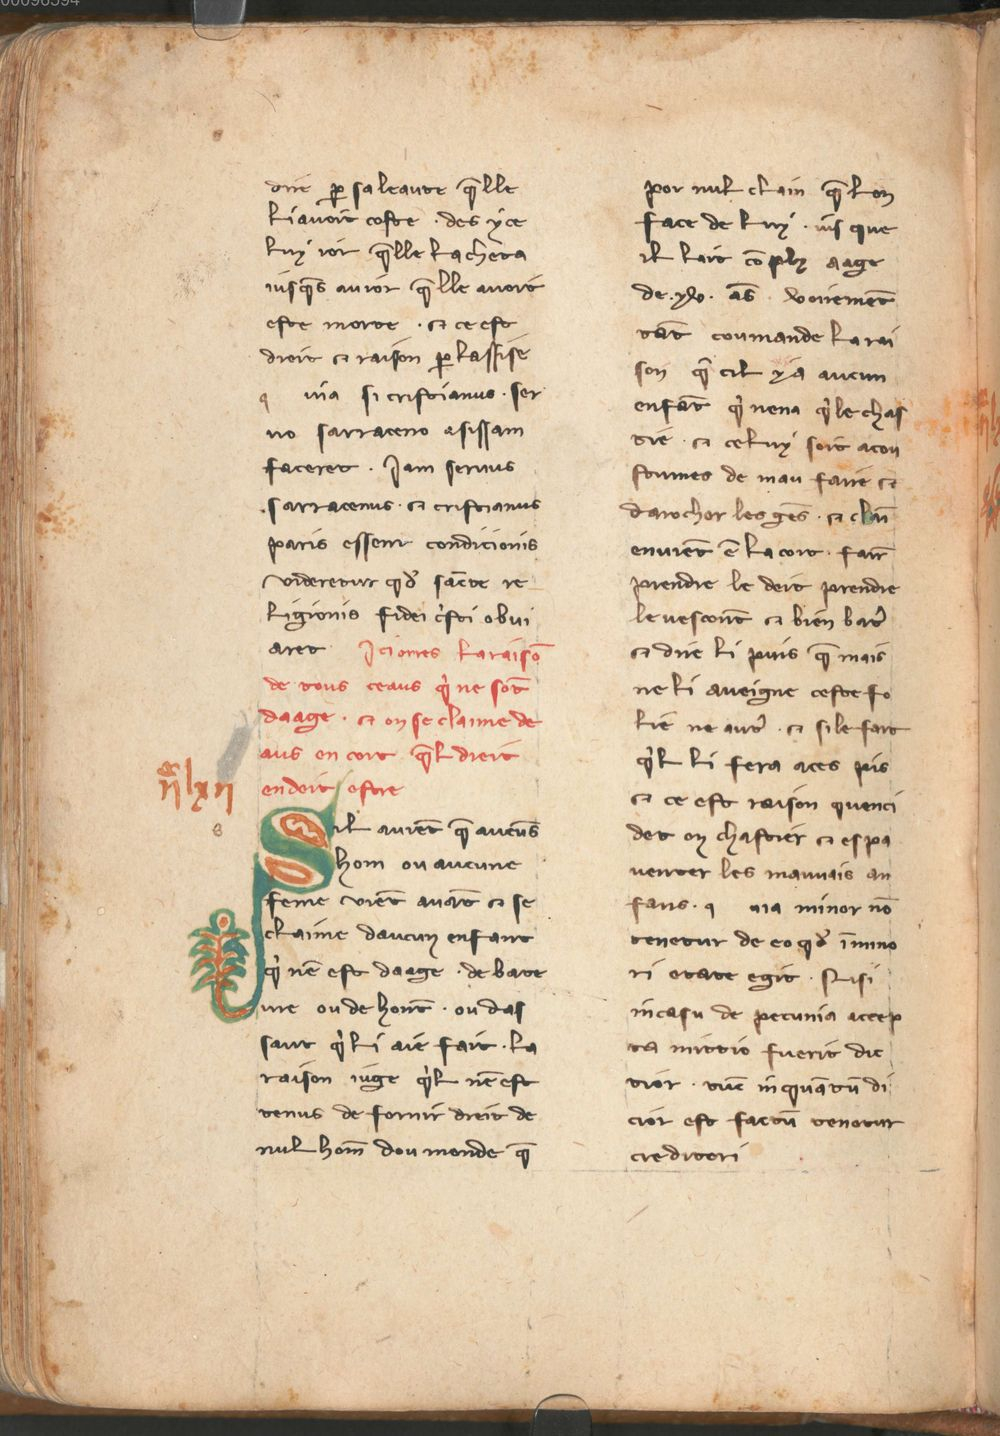 00096394
dire par sa leaute q̃ lle
li avoit coste · des y ce
luy ior q̃ lle lacheta
iusq̃s au ior q̃ lle avoit
este morte · et ce est
droit et raison par lassise
q via si cristianus · ser
uo sarraceno asissam
faceret · Iam seruus
sarracenus · et cristianus
paris essent condicionis
videretur qđ sancte re
ligionis fidei c̃sti obui
aret Ici orres la raisõ
de tous ceaus q̃ ne sõt
daage · et on se claime de
aus en cort q̃l dreit
en doit estre
c̃ lxii
S il avient q̃ aucũs
hom ou aucune
feme vient avãt et se
claime daucun enfant
q̃ nẽ est daage · de bate
ure ou de hont · ou das
saut q̃ li aie fait · la
raison iuge q̃l nẽ est
tenus de fornir dreit de
nul hom̃ dou monde q̃
por nul claim q̃ lon
face de luy · iusque
il lait cõply aage
de · xv · ãs voirement
tãt coumande la rai
son q̃ cil y a aucun
enfãt q̃ nen a q̃ le chas
tie · et celuy soit acou
stumes de mau faire et
darocher les gẽs · et clañ
envient ẽ la cort · faire
prendre le deit prendre
le vescont et bien batr̃
et dire li puis q̃ mais
ne li aveigne ceste fo
lie ne autr̃ · et si le fait
q̃l li fera aces pis
et ce est raison quenci
det on chastier et espa
venter les mauvais an
fans · q via minor nõ
tenetur de eo qđ ĩ mino
ri etate egit · Nisi
in casu de pecunia accep
ta mittio fuerit dic
tior · tũc in quãtũ di
cior est factũ tenetur
creditori